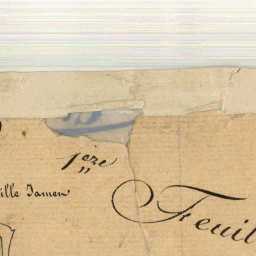 1ère
ille Jamen
Feuil